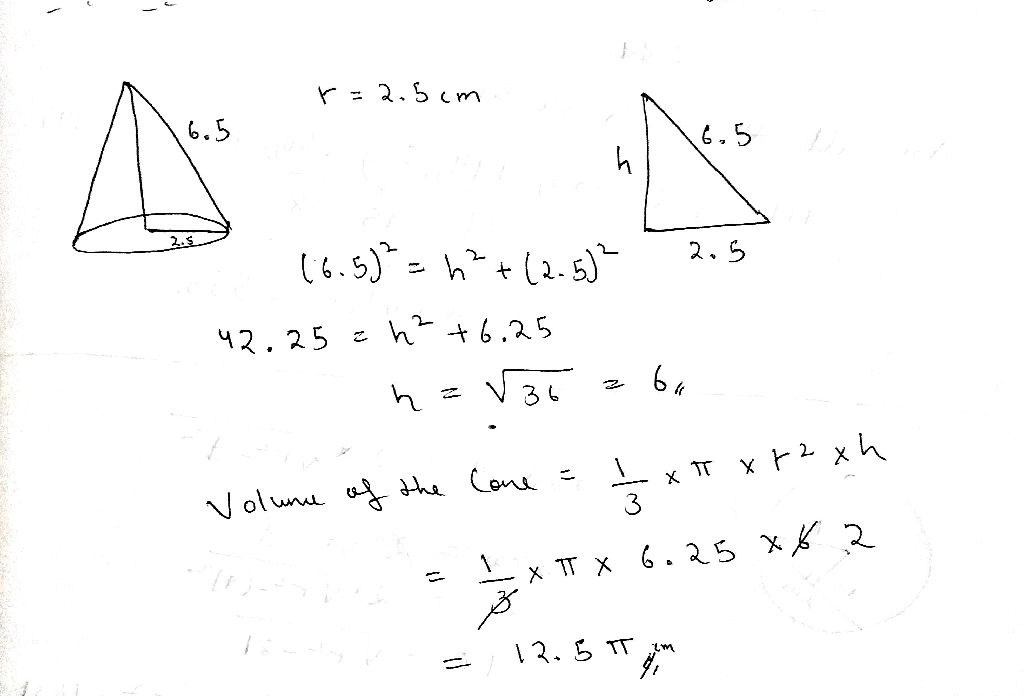 r = 2.5 cm
6.5
2.5
h
6.5
2.5
(6.5)² = h² + (2.5)²
42.25 = h² + 6.25
h = √36 = 6
Volume of the Cone = 1/3 × π × r² × h
= 1/3 × π × 6.25 × 6 2
= 12.5 π cm